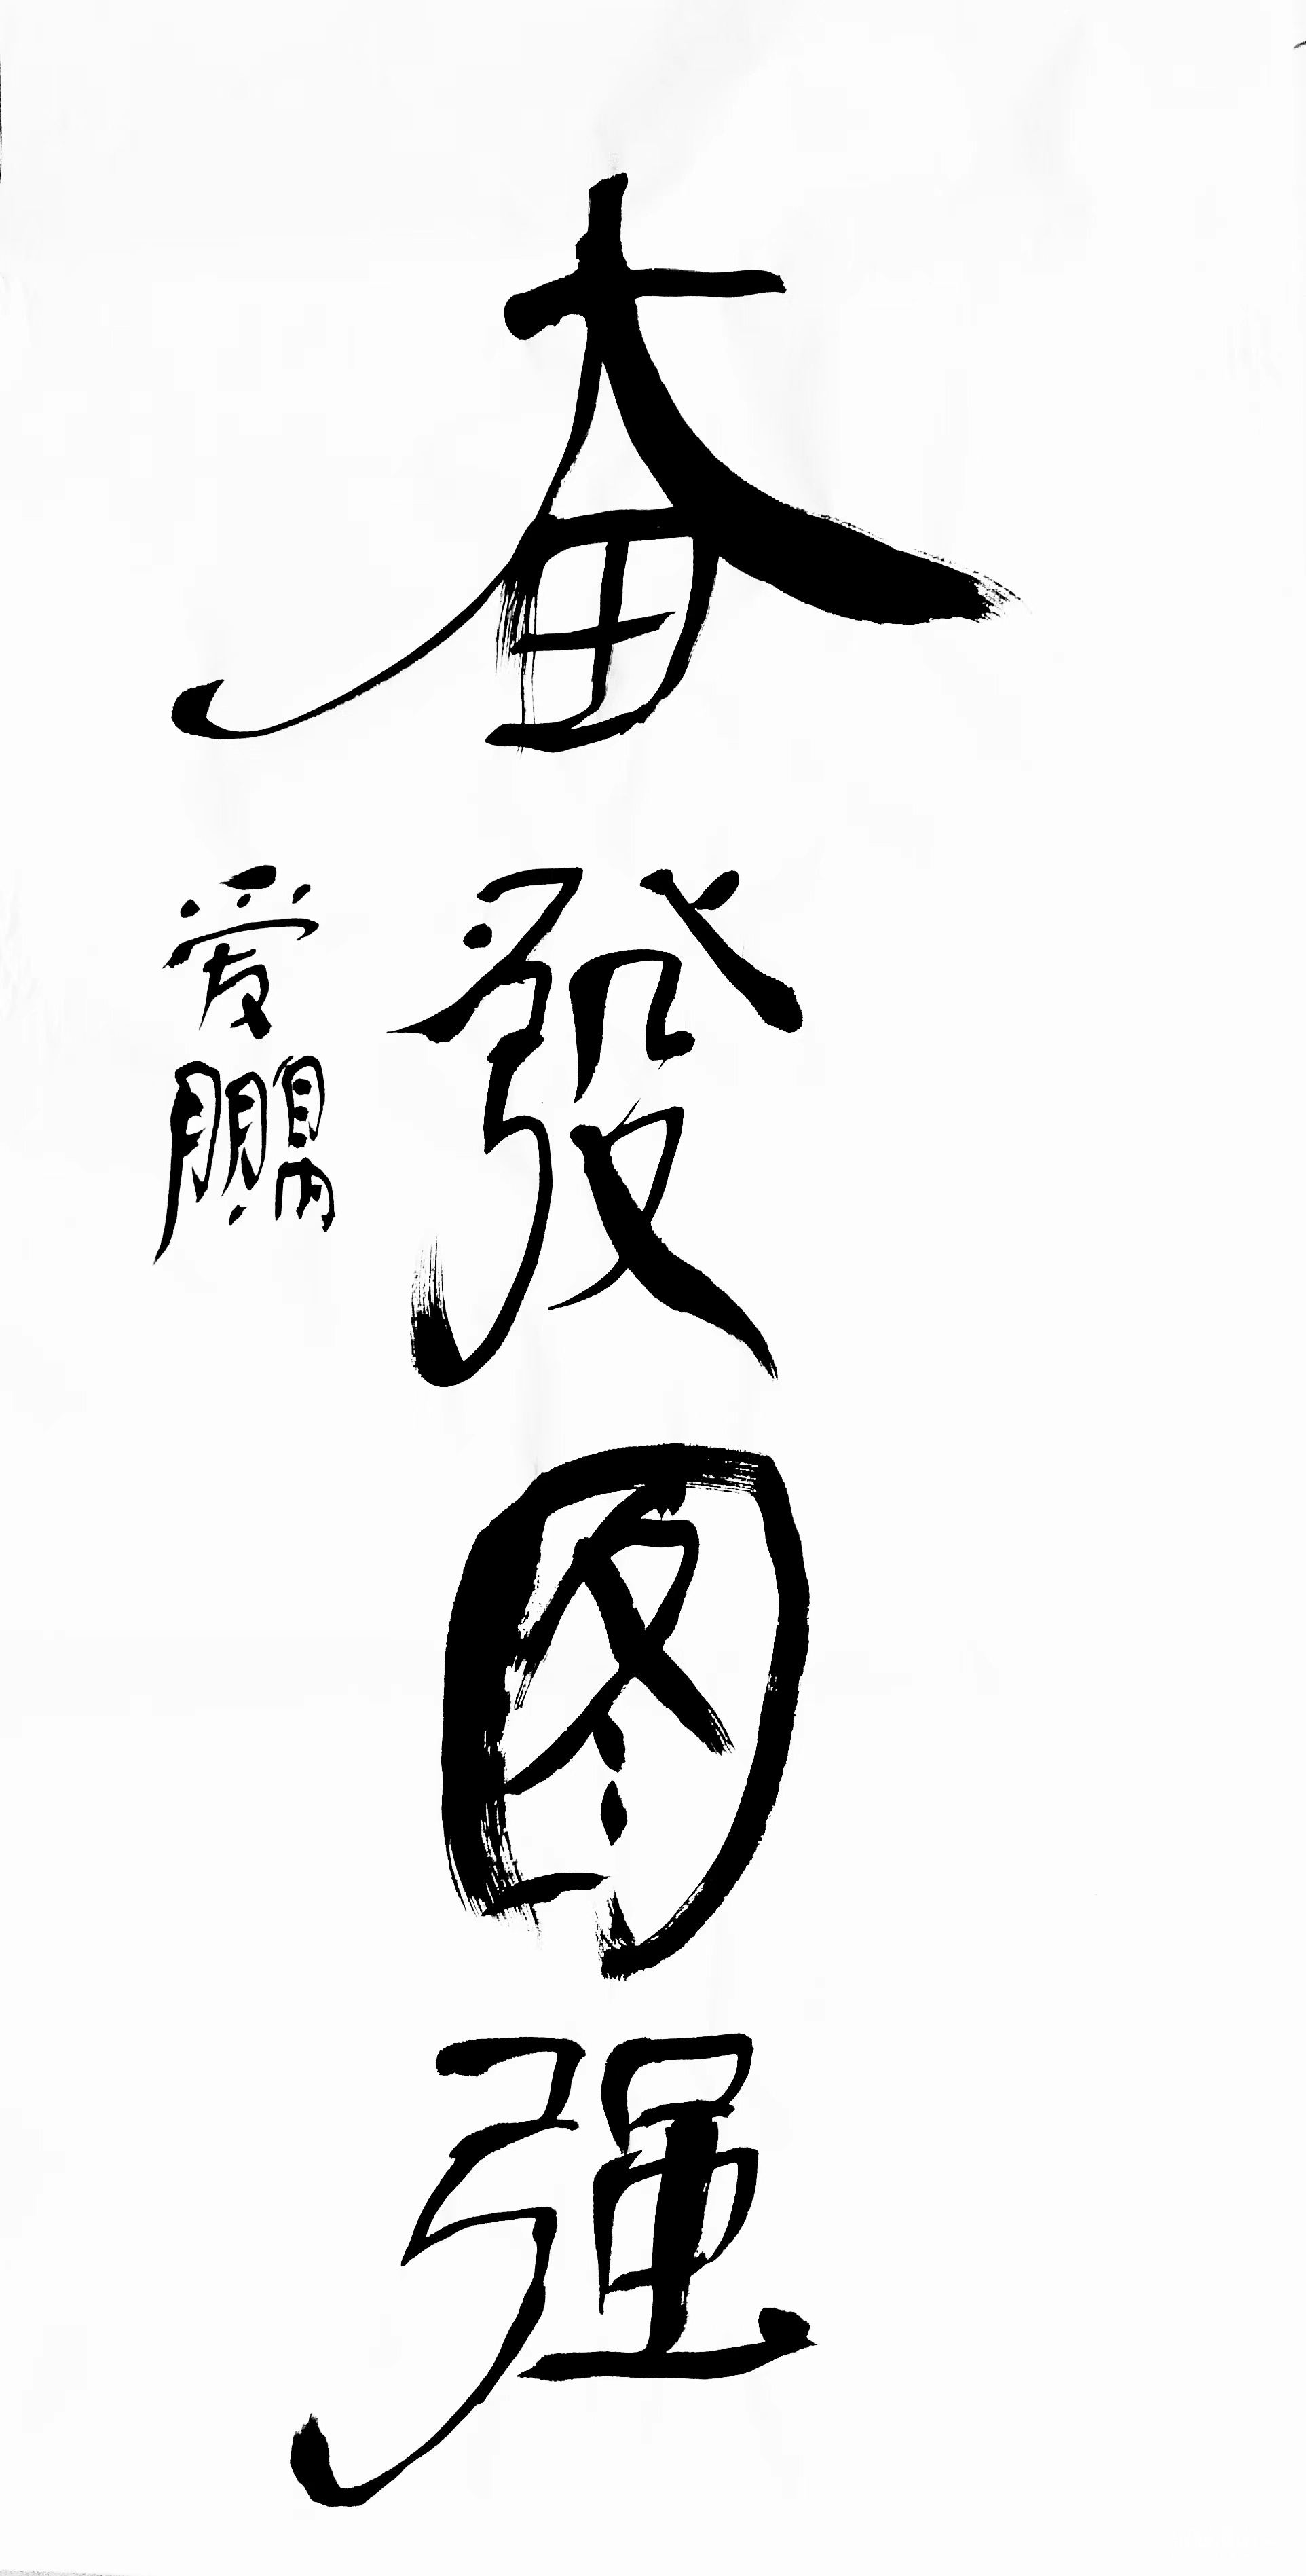 奋發图强
爱鹏